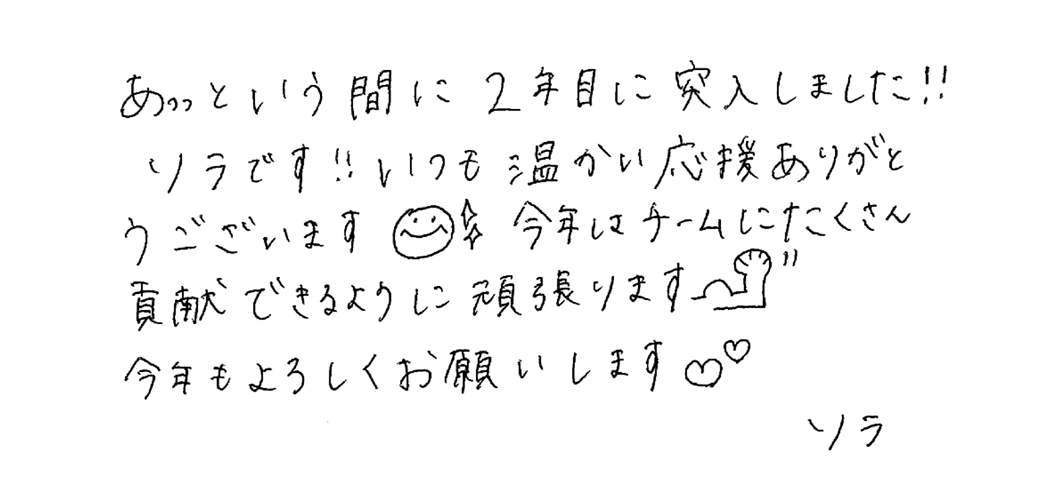 あっっという間に2年目に突入しました!!
ソラです!!いつも温かい応援ありがと
うございます 今年はチームにたくさん
貢献できるように頑張ります
今年もよろしくお願いします♡♡
ソラ